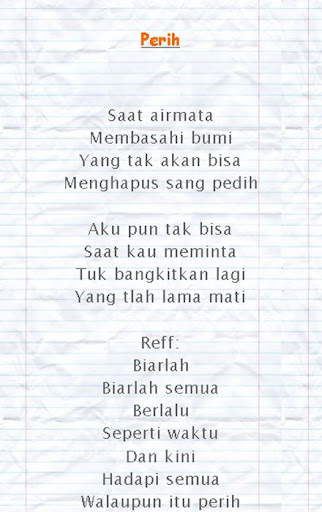 Perih
Saat airmata
Membasahi bumi
Yang tak akan bisa
Menghapus sang pedih
Aku pun tak bisa
Saat kau meminta
Tuk bangkitkan lagi
Yang tlah lama mati
Reff:
Biarlah
Biarlah semua
Berlalu
Seperti waktu
Dan kini
Hadapi semua
Walaupun itu perih